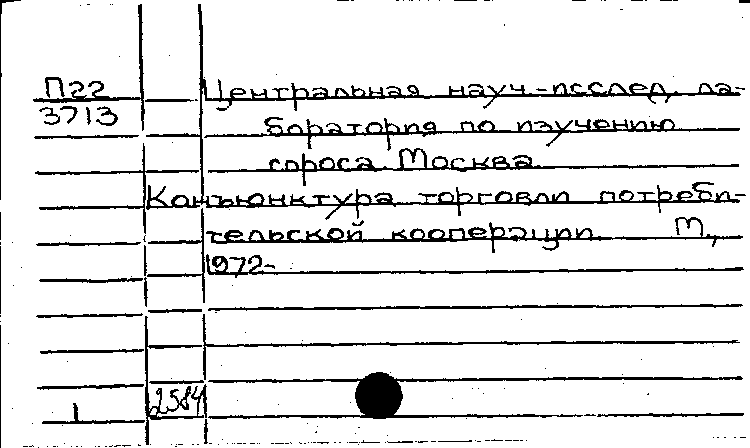 П22
3713
Центральная науч.-исслед. ла-
боратория по изучению
спроса. Москва.
Конъюнктура торговли потреби-
тельской кооперации. М.,
1972-
1
2584